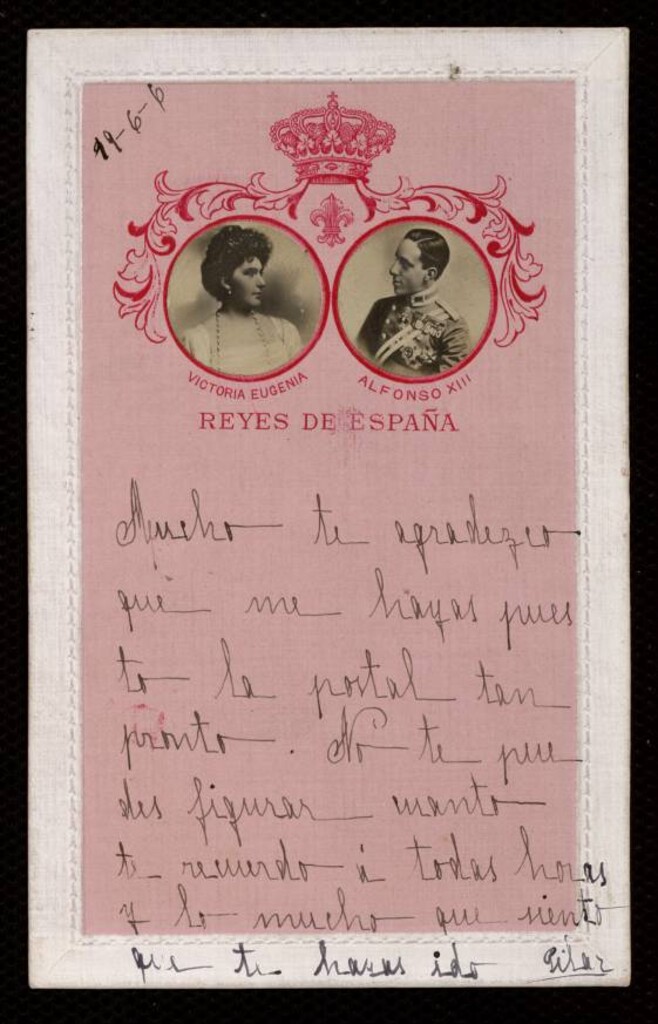 19-6-6
VICTORIA EUGENIA
ALFONSO XIII
REYES DE ESPAÑA
Mucho te agradezco
que me hayas pues
to la postal tan
pronto. No te pue
des figurar cuanto
te recuerdo á todas horas
y lo mucho que siento
que te hayas ido Pilar